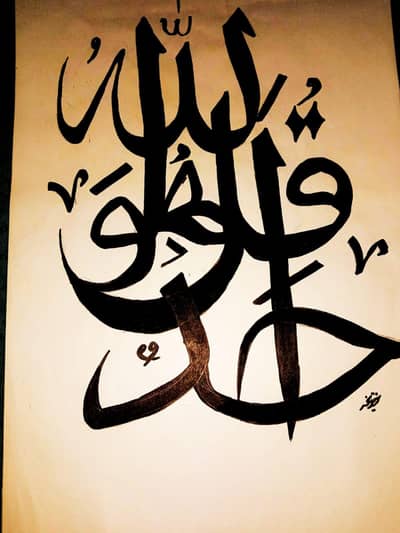 قُل هُوَ اللّٰه أَحَدٌ